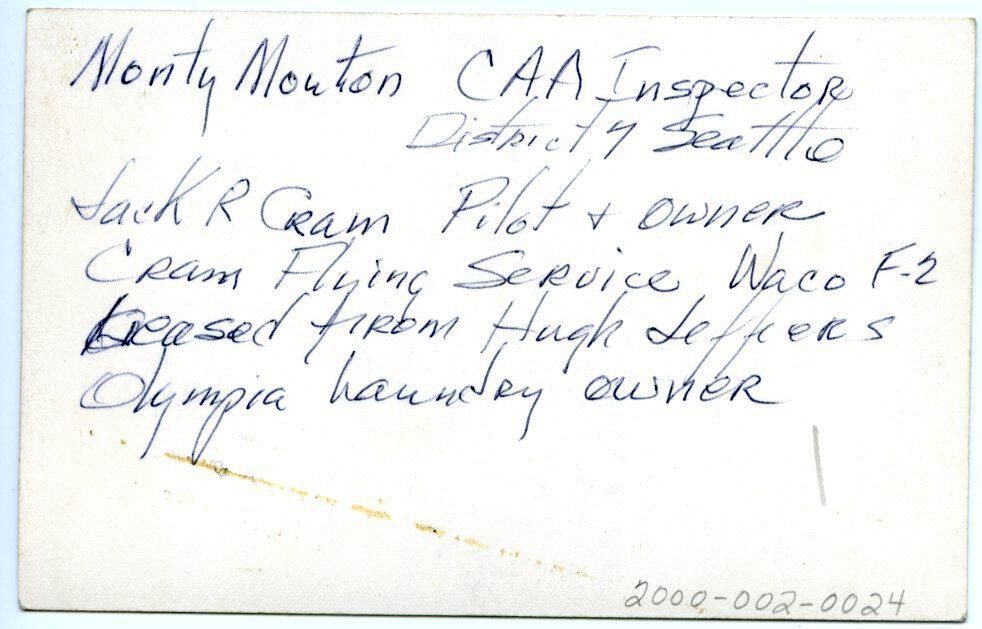 Monty Mouton CAA Inspector
District 7 Seattle
Jack R Cram Pilot + owner
Cram Flying Service Waco F-2
Leased from Hugh Jeffers
Olympia Laundry owner
2000-002-0024